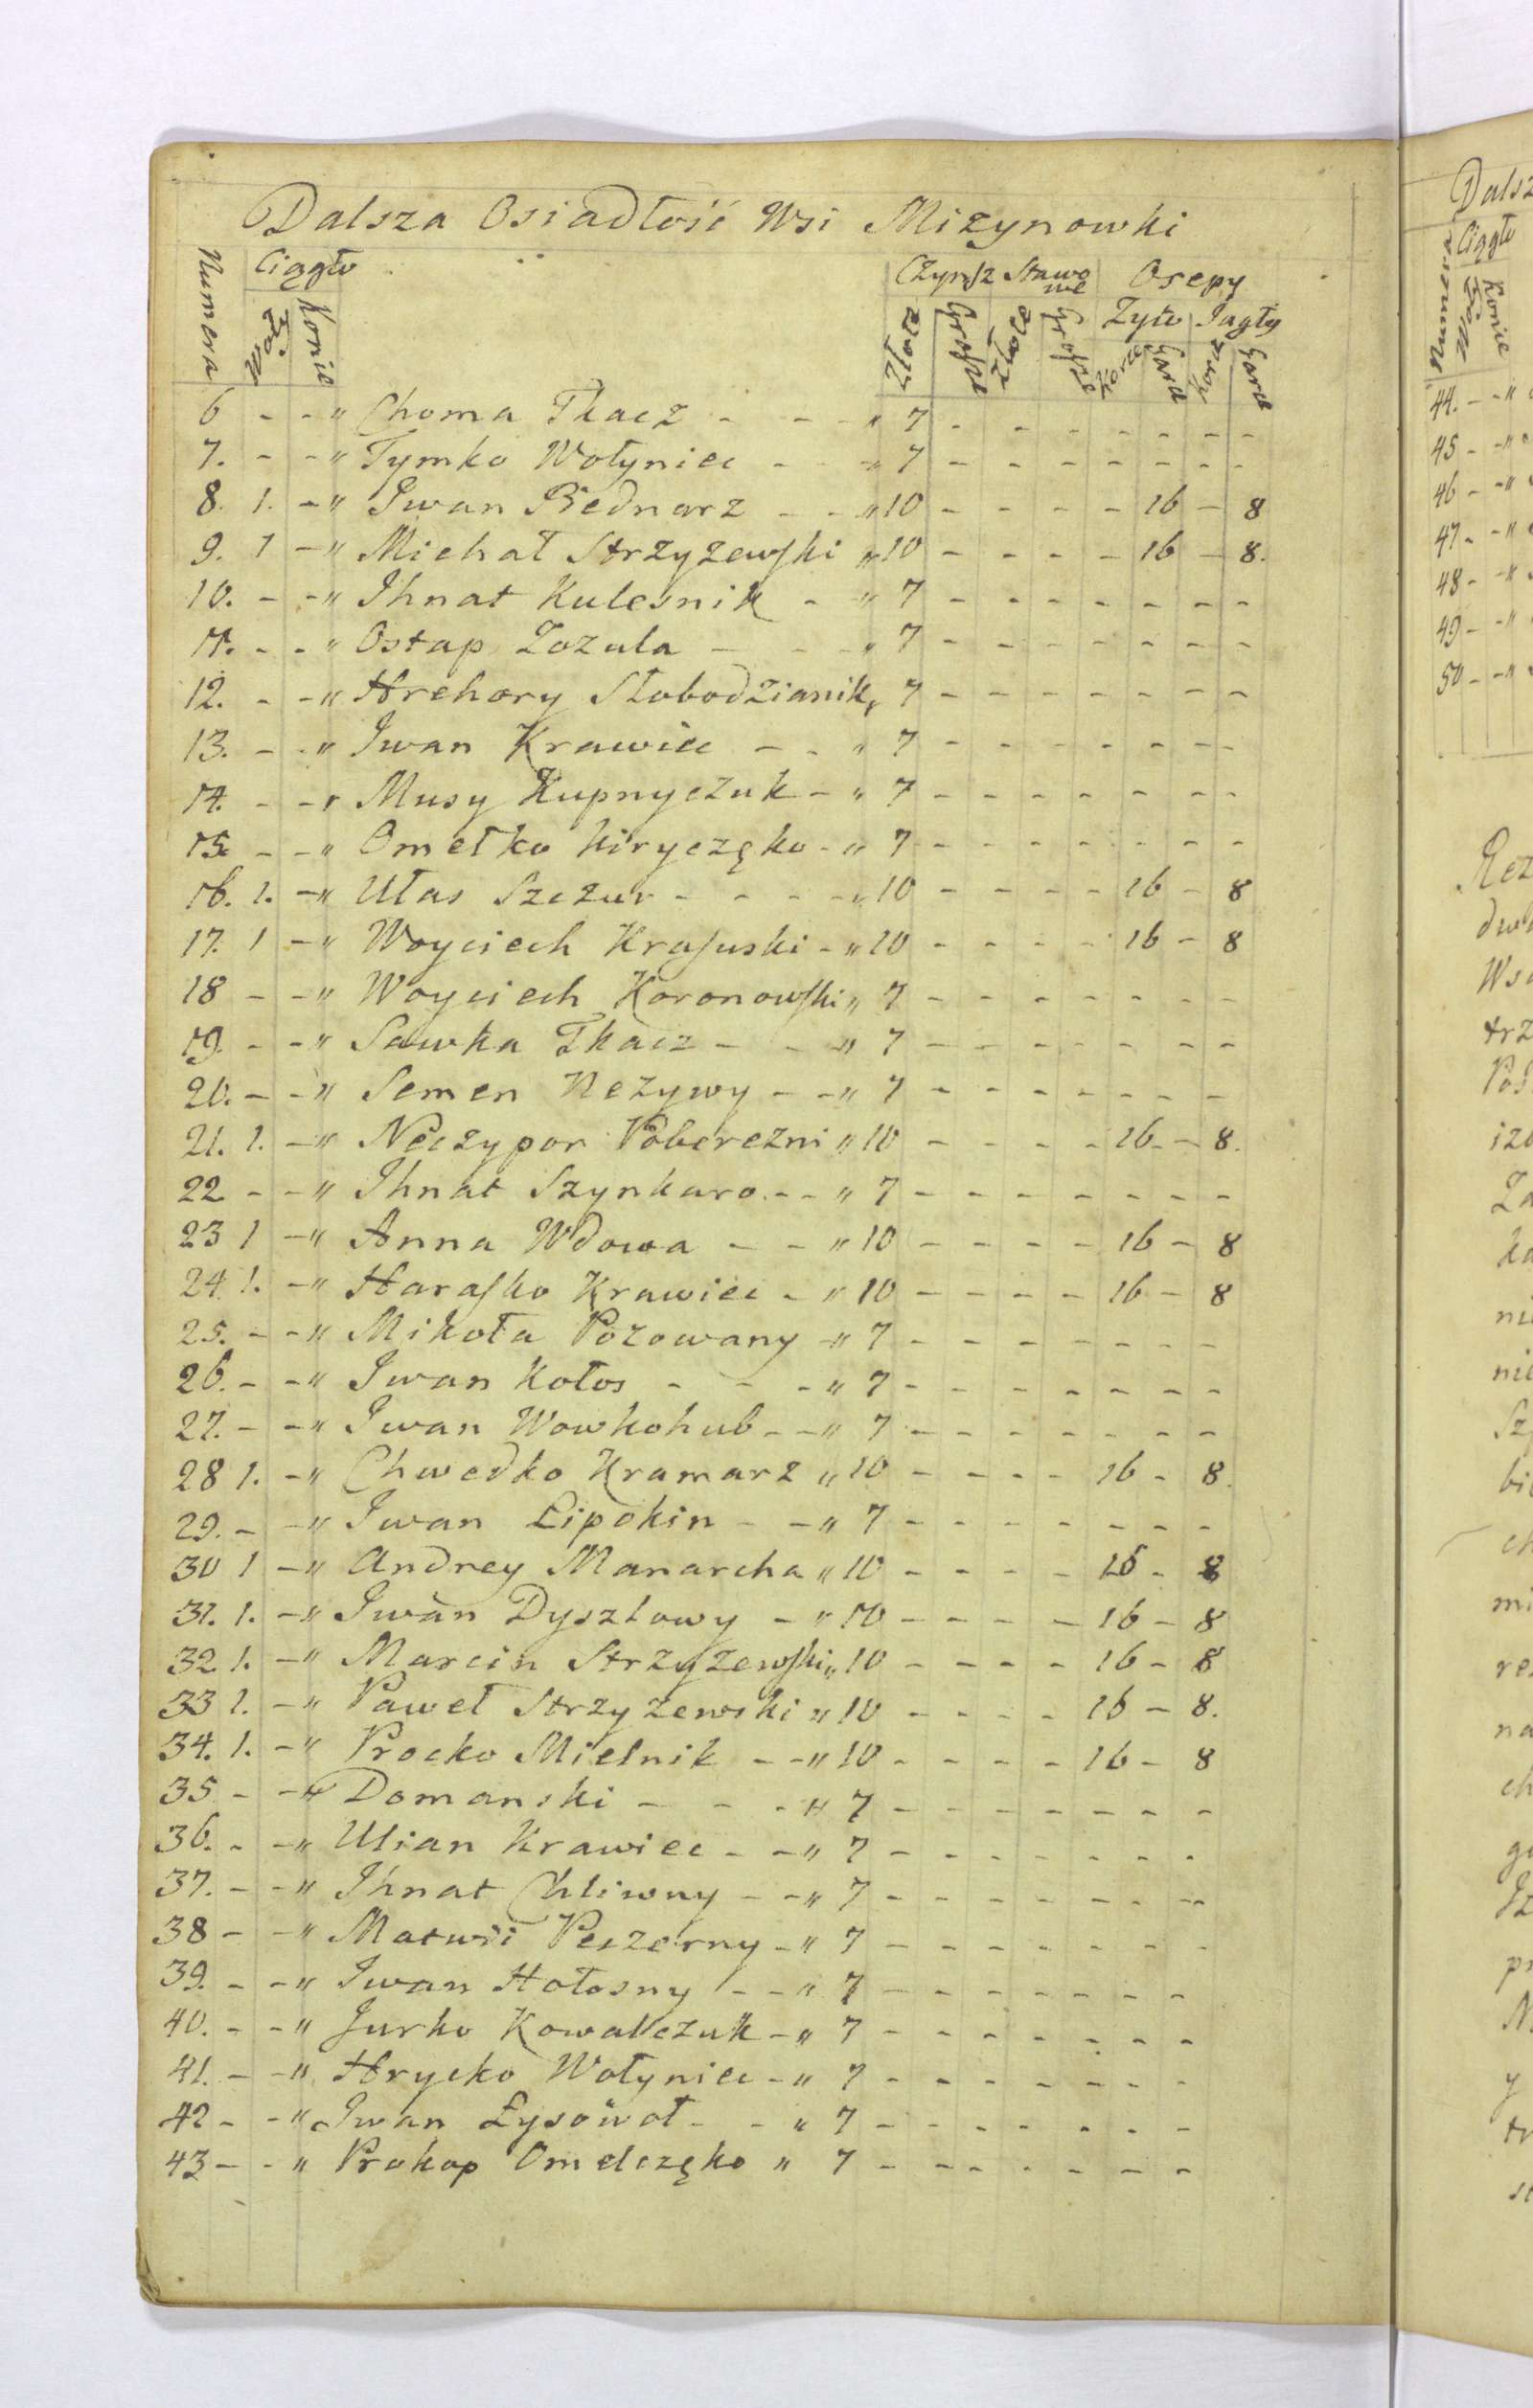 Dalsza Osiadłość Wsi Mizynowki
Numera Ciągło Konie Czynsz Stawowe Osepy
Żyto Jagły
Złoty Grosze Złoty Grosze Korcy Garce Korcy Garce
6 - - " Choma Tkacz - - " 7 - - - - - - - -
7. - - " Tymko Wołyniec - - " 7 - - - - - - - -
8. 1. - " Iwan Bednarz - - " 10 - - - - 16 - 8
9. 1 - " Michał Strzyzewski " 10 - - - - 16 - 8.
10. - - " Ihnat Kulesnik - " 7 - - - - - - - -
11. - - " Ostap Zozula - - " 7 - - - - - - - -
12. - - " Hrehory Słobodzianik " 7 - - - - - - - -
13. - - " Iwan Krawiec - - " 7 - - - - - - - -
14. - - " Musy Kupnyczuk - " 7 - - - - - - - -
15 - - " Omelko Kiryczęko - " 7 - - - - - - - -
16. 1. - " Ułas Szczur - - - " 10 - - - - 16 - 8
17. 1 - " Woyciech Krasuski - " 10 - - - - 16 - 8
18 - - " Woyciech Koronowski " 7 - - - - - - - -
19. - - " Sawka Tkacz - - " 7 - - - - - - - -
20. - - " Semen Nezywy - - " 7 - - - - - - - -
21. 1. - " Neczypor Poberezni " 10 - - - - 16 - 8.
22 - - " Ihnat Szynkaro - - " 7 - - - - - - - -
23 1 - " Anna Wdowa - - " 10 - - - - 16 - 8
24. 1. - " Harasko Krawiec - " 10 - - - - 16 - 8
25. - - " Mikoła Pozowany - " 7 - - - - - - - -
26. - - " Iwan Kołos - - - " 7 - - - - - - - -
27. - - " Iwan Wowkohub - - " 7 - - - - - - - -
28 1. - " Chwedko Kramarz " 10 - - - - 16 - 8.
29. - - " Iwan Lipokin - - " 7 - - - - - - - -
30 1 - " Andrey Manarcha " 10 - - - - 16 - 8
31. 1. - " Iwan Dyszlowy - " 10 - - - - 16 - 8
32 1. - " Marcin Strzyzewski " 10 - - - - 16 - 8
33 1. - " Paweł Strzyzewski " 10 - - - - 16 - 8.
34. 1. - " Procko Mielnik - - " 10 - - - - 16 - 8
35 - - " Domanski - - - " 7 - - - - - - - -
36. - - " Ulian Krawiec - - " 7 - - - - - - - -
37. - - " Ihnat Chliwny - - " 7 - - - - - - - -
38 - - " Matwii Peczerny - " 7 - - - - - - - -
39. - - " Iwan Hołosny - - " 7 - - - - - - - -
40. - - " Jurko Kowalczuk - " 7 - - - - - - - -
41. - - " Hrycko Wołyniec - " 7 - - - - - - - -
42 - - " Iwan Łysowoł - - " 7 - - - - - - - -
43 - - " Prokop Omelczęko " 7 - - - - - - - -
Ciągło
Konie
44. - - "
45 - - "
46 - - "
47 - - "
48 - - "
49 - - "
50 - - "